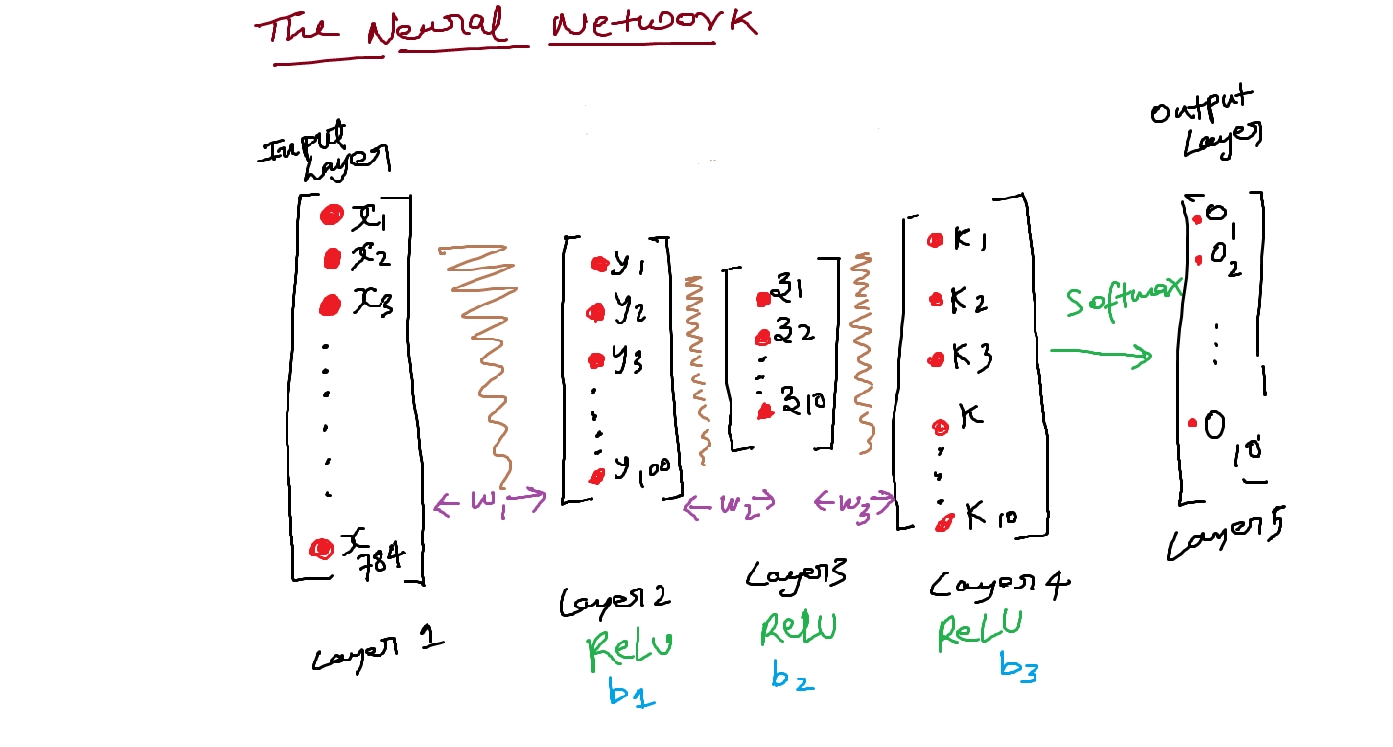 The Neural Network
Input
Layer
x1
x2
x3
x784
Layer 1
w1
y1
y2
y3
y100
Layer 2
ReLU
b1
w2
z1
z2
z10
Layer 3
ReLU
b2
w3
K1
K2
K3
K
K10
Layer 4
ReLU
b3
Softmax
Output
Layer
O1
O2
O10
Layer 5